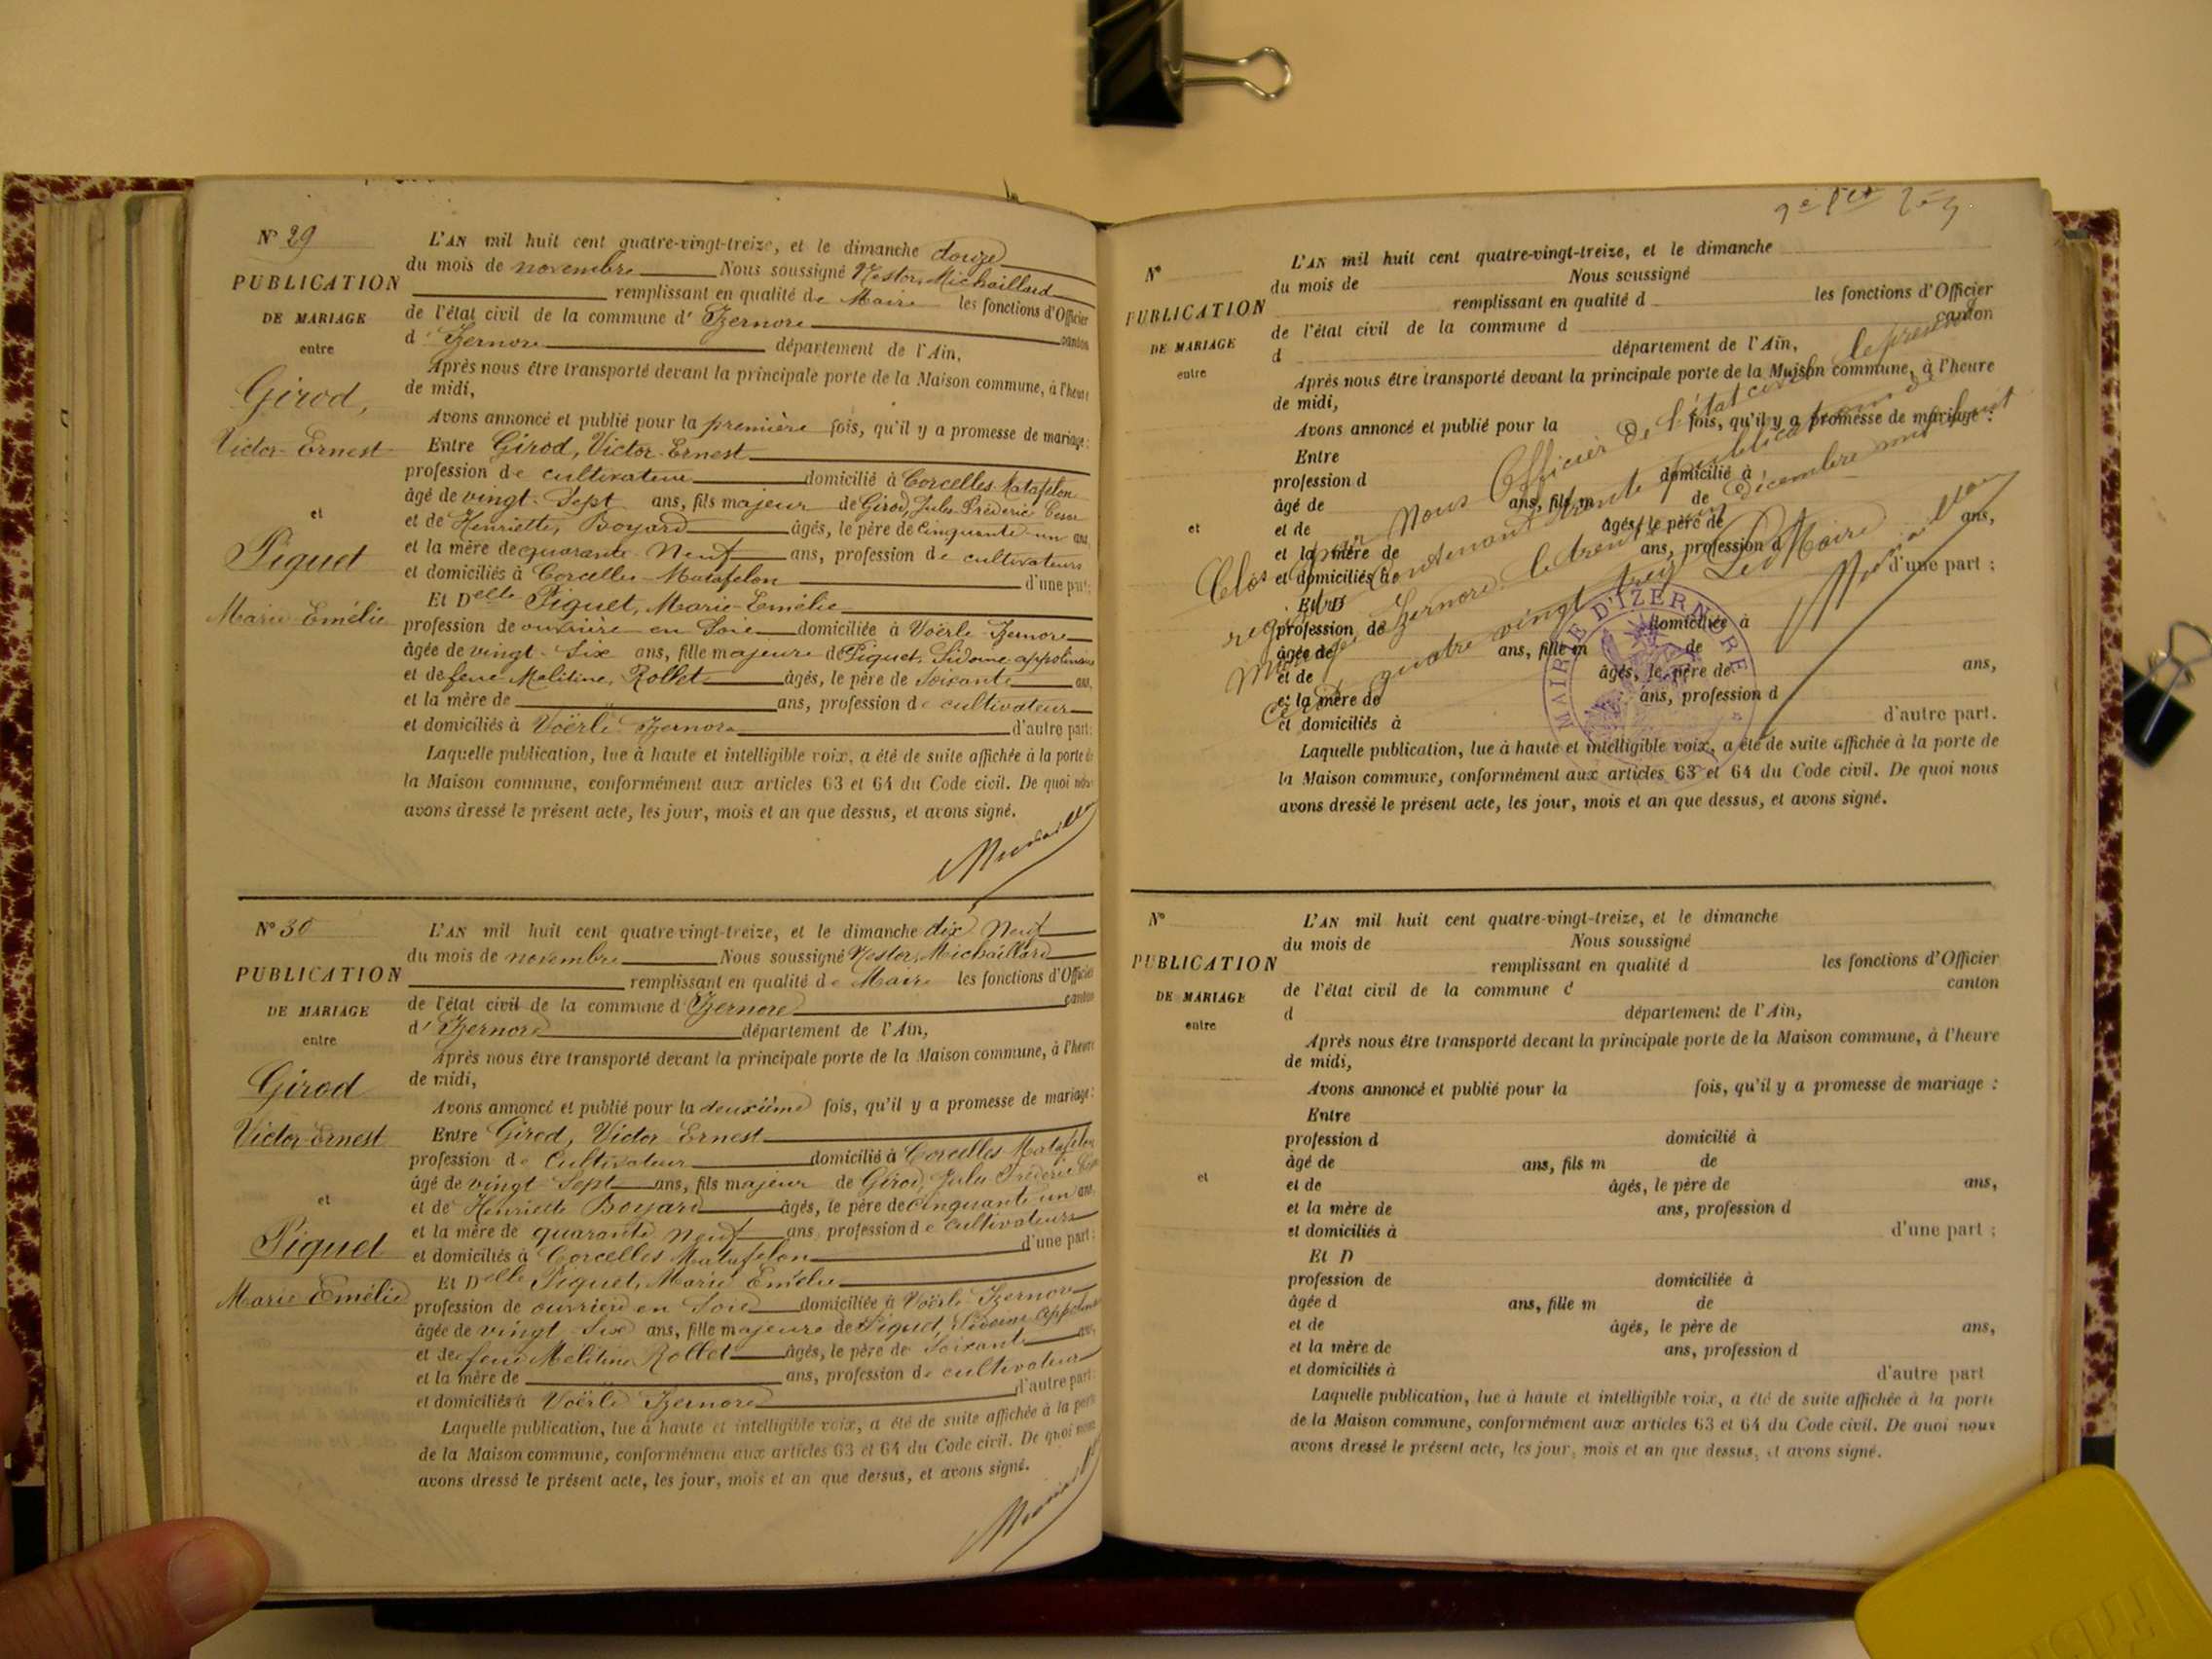 N° 29
PUBLICATION
DE MARIAGE
entre
Girod,
Victor-Ernest
et
Piguet
Marie-Emélie
L'AN mil huit cent quatre-vingt-treize, et le dimanche douze
du mois de novembre Nous soussigné Nestor, Michaillard
remplissant en qualité de Maire les fonctions d'Officier
de l'état civil de la commune d'Izernore canton
d'Izernore département de l'Ain,
Après nous être transporté devant la principale porte de la Maison commune, à l'heure
de midi,
Avons annoncé et publié pour la première fois, qu'il y a promesse de mariage :
Entre Girod, Victor-Ernest
profession de cultivateur domicilié à Corcelles-Matafelon
âgé de vingt-Sept ans, fils majeur de Girod, Jules-Frédéric Cesar
et de Henriette, Boyard âgés, le père de cinquante-un ans,
et la mère de quarante-Neuf ans, profession de cultivateurs
et domiciliés à Corcelles-Matafelon d'une part ;
Et Delle Piguet, Marie-Emélie
profession de ouvrière en Soie domiciliée à Voërle-Izernore
âgée de vingt-Six ans, fille majeure de Piguet, Sidoine appolinaire
et de feue Melitine, Rollet âgés, le père de Soixante ans,
et la mère de ans, profession de cultivateur
et domiciliés à Voërle Izernore d'autre part.
Laquelle publication, lue à haute et intelligible voix, a été de suite affichée à la porte de
la Maison commune, conformément aux articles 63 et 64 du Code civil. De quoi nous
avons dressé le présent acte, les jour, mois et an que dessus, et avons signé.
N° 30
PUBLICATION
DE MARIAGE
entre
Girod
Victor-Ernest
et
Piguet
Marie Emélie
L'AN mil huit cent quatre-vingt-treize, et le dimanche dix Neuf
du mois de novembre Nous soussigné Nestor, Michaillard
remplissant en qualité de Maire les fonctions d'Officier
de l'état civil de la commune d'Izernore canton
d'Izernore département de l'Ain,
Après nous être transporté devant la principale porte de la Maison commune, à l'heure
de midi,
Avons annoncé et publié pour la deuxième fois, qu'il y a promesse de mariage :
Entre Girod, Victor Ernest
profession de Cultivateur domicilié à Corcelles-Matafelon
âgé de vingt-Sept ans, fils majeur de Girod, Jules Frédéric
et de Henriette Boyard âgés, le père de cinquante un ans,
et la mère de quarante Neuf ans, profession de cultivateurs
et domiciliés à Corcelles Matafelon d'une part ;
Et Delle Piguet, Marie Emélie
profession de ouvrière en Soie domiciliée à Voërle Izernore
âgée de vingt-Six ans, fille majeure de Piguet, Sidoine
et de feue Melitine Rollet âgés, le père de Soixante ans,
et la mère de ans, profession de cultivateur
et domiciliés à Voërle Izernore d'autre part
Laquelle publication, lue à haute et intelligible voix, a été de suite affichée à la porte
de la Maison commune, conformément aux articles 63 et 64 du Code civil. De quoi nous
avons dressé le présent acte, les jour, mois et an que dessus, et avons signé.
N°
PUBLICATION
DE MARIAGE
entre
et
L'AN mil huit cent quatre-vingt-treize, et le dimanche
du mois de Nous soussigné
remplissant en qualité d les fonctions d'Officier
de l'état civil de la commune d canton
d département de l'Ain,
Après nous être transporté devant la principale porte de la Maison commune, à l'heure
de midi,
Avons annoncé et publié pour la fois, qu'il y a promesse de mariage :
Entre
profession d domicilié à
âgé de ans, fils m de
et de âgés, le père de ans,
et la mère de ans, profession d
et domiciliés à d'une part ;
Et D
profession de domiciliée à
âgée de ans, fille m de
et de âgés, le père de ans,
et la mère de ans, profession d
et domiciliés à d'autre part.
Laquelle publication, lue à haute et intelligible voix, a été de suite affichée à la porte de
la Maison commune, conformément aux articles 63 et 64 du Code civil. De quoi nous
avons dressé le présent acte, les jour, mois et an que dessus, et avons signé.
Clos par Nous Officier de l'état civil le présent
registre contenant trente publications de
Mariages Izernore le trente un Décembre mil huit
cent quatre vingt treize Le Maire
MAIRIE D'IZERNORE
N°
PUBLICATION
DE MARIAGE
entre
et
L'AN mil huit cent quatre-vingt-treize, et le dimanche
du mois de Nous soussigné
remplissant en qualité d les fonctions d'Officier
de l'état civil de la commune d canton
d département de l'Ain,
Après nous être transporté devant la principale porte de la Maison commune, à l'heure
de midi,
Avons annoncé et publié pour la fois, qu'il y a promesse de mariage :
Entre
profession d domicilié à
âgé de ans, fils m de
et de âgés, le père de ans,
et la mère de ans, profession d
et domiciliés à d'une part ;
Et D
profession de domiciliée à
âgée d ans, fille m de
et de âgés, le père de ans,
et la mère de ans, profession d
et domiciliés à d'autre part
Laquelle publication, lue à haute et intelligible voix, a été de suite affichée à la porte
de la Maison commune, conformément aux articles 63 et 64 du Code civil. De quoi nous
avons dressé le présent acte, les jour, mois et an que dessus, et avons signé.